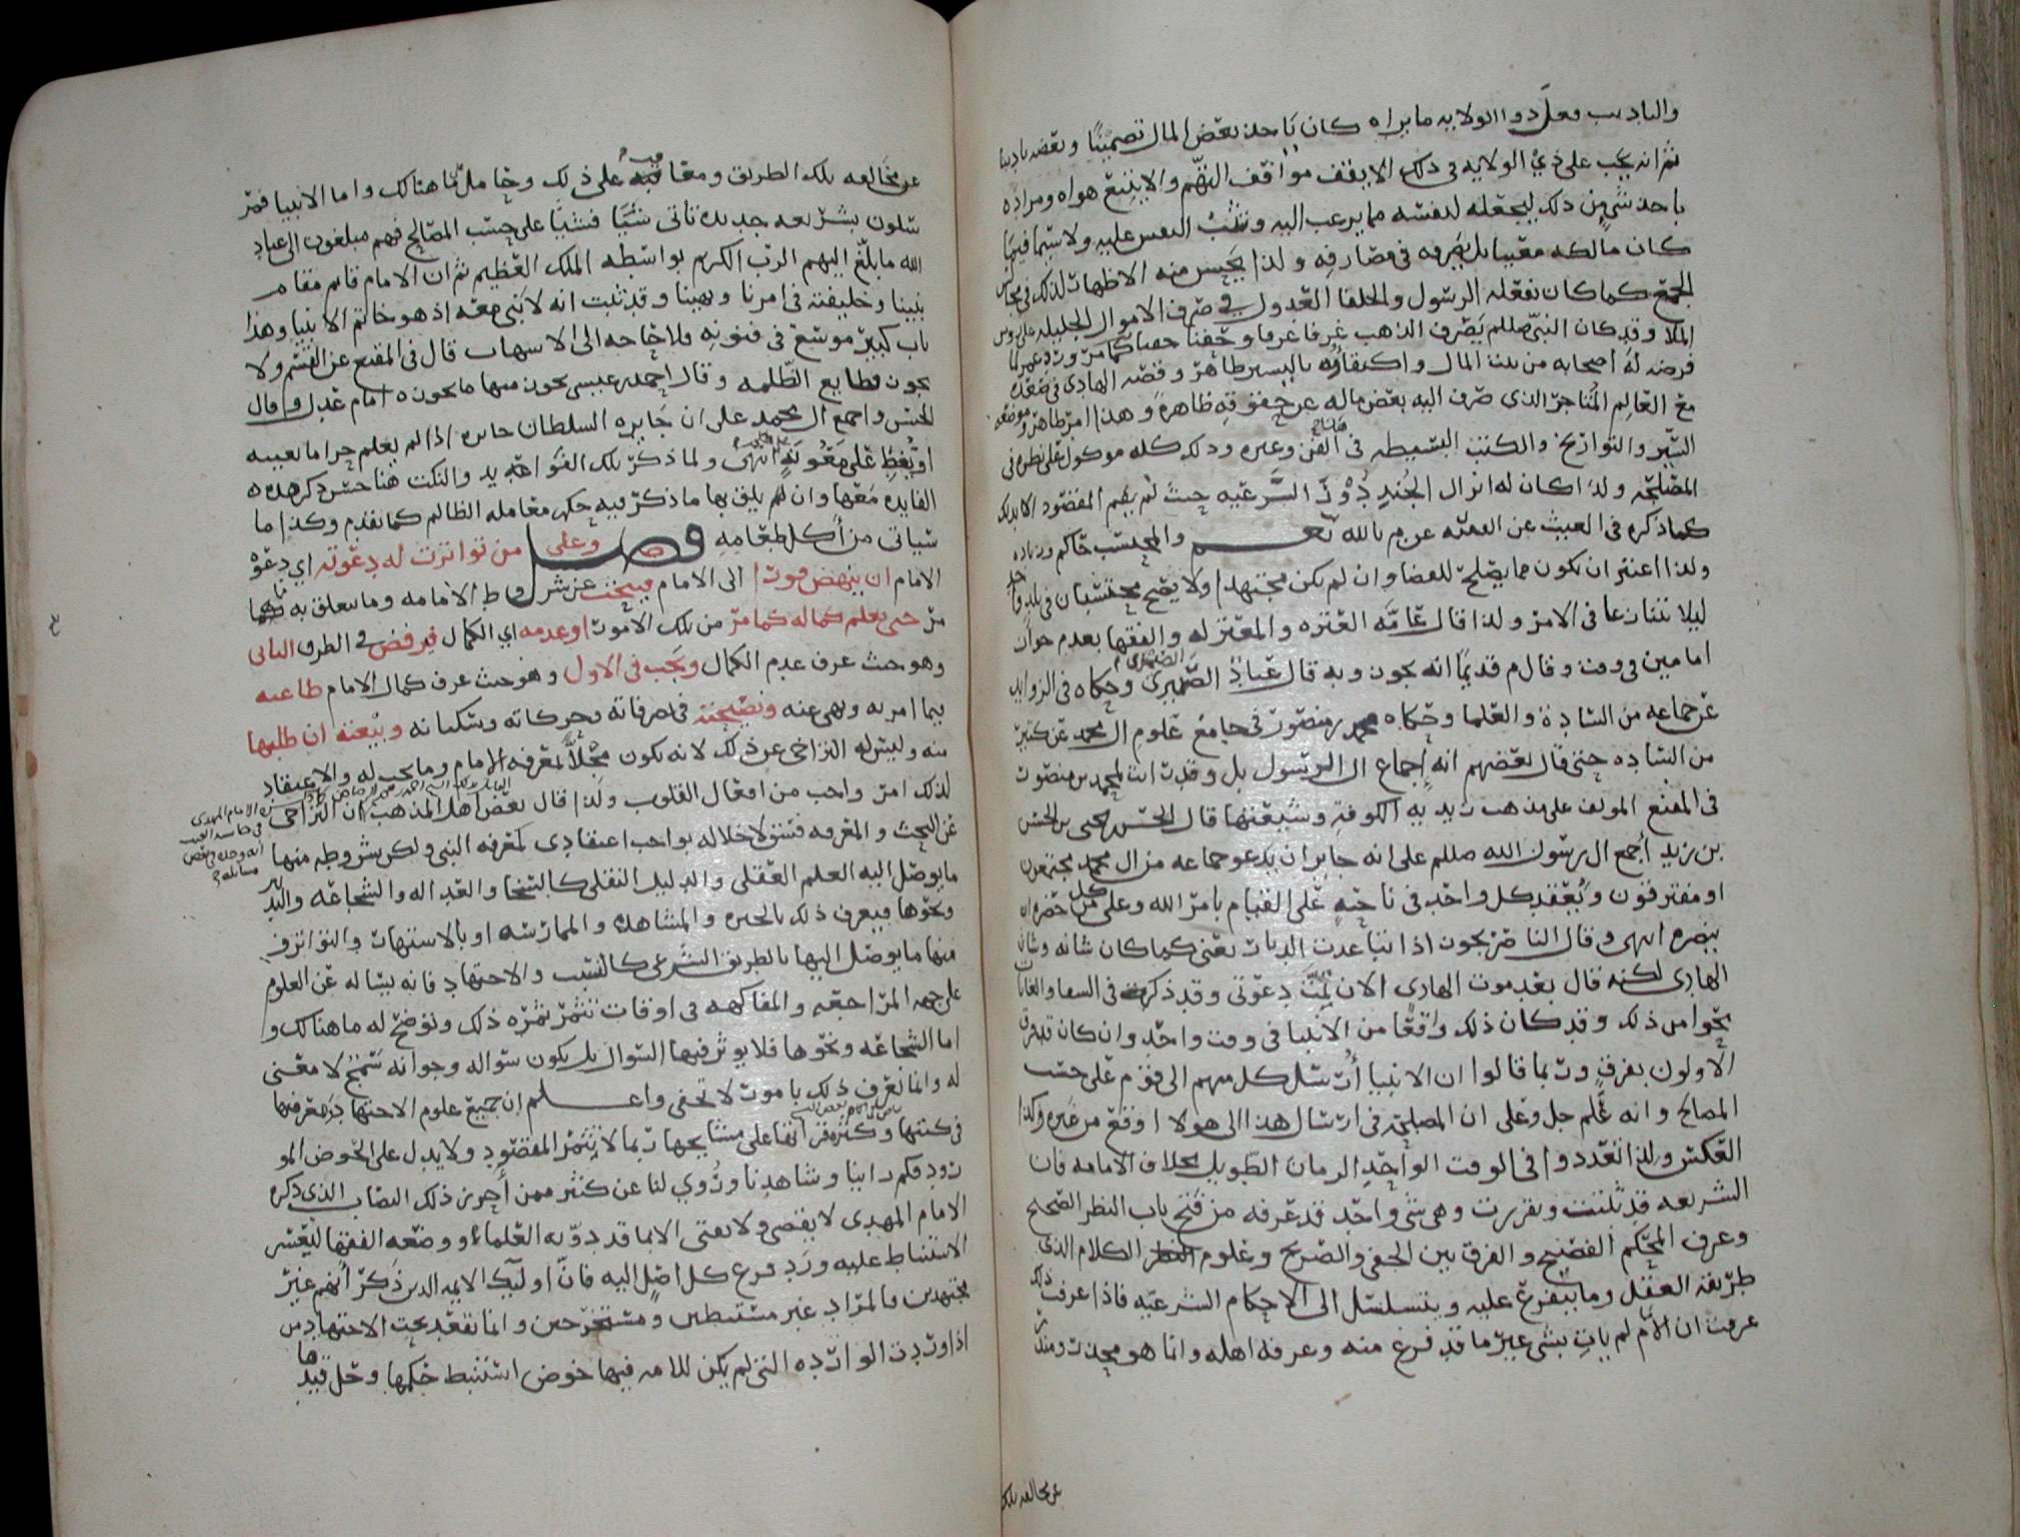 والتاديب فعلى ذو الولايه ما يراه كان ياخذ بعض المال تضمينًا وبعضه تاديبا
ثم انه يجب على ذي الولايه في ذلك الا يقف مواقف التهم والا يتبع هواه ومراده
ياخذ شي من ذلك ليجعله لنفسه مما يرغب اليه النفس عليه ولا سيما فيما
كان مالكه معينا بل يصرفه في مصارفه ولذا يحسن منه الاظهار لذلك في مجالس
الجمع كما كان يفعله الرسول والخلفا العدول في صرف الاموال الجليله على روس
الملا وقد كان النبي صللم يصرف الذهب غرفا غرفا وحفنا حفنا كما مر
فرضه له اصحابه من بيت المال واكتفاؤه باليسير ظاهر وقصه الهادي في صعده
مع العالم المتاجر الذي صرف اليه بعض ماله عن حقوقه ظاهرة وهذا امر ظاهر
السير والتواريخ والكتب البسيطه في الفن وغيره وذلك كله موكول على نظره في
المصلحه ولذا كان له انزال الجند دور السرعيه حيث لم يتم المقصود الا بذلك
كما ذكره في الغيث عن الفقيه ع م بالله نعم والمحتسب حاكم وزياده
ولذا اعتبر ان يكون مما يصلح للقضا وان لم يكن مجتهدا ولا يصح محتسبان في بلد واحد
ليلا يتنازعا في الامر ولذا قال عامه العتره والمعتزله والفقها بعدم جواز
امامين في وقت وقال م قديمًا انه يجوز وبه قال عباد الصيمري وحكاه في الزوايد
عن جماعه من الساده والعلما وحكاه محمد بن منصور في جامع علوم ال محمد عن كثير
من الساده حتى قال بعضهم انه اجماع ال الرسول بل وقد رايت لمحمد بن منصور
في المقنع المولف على مذهب زيديه الكوفه وشيعتها قال الحسن بن يحيى بن الحسين
بن زيد اجمع ال رسول الله صللم على انه جايز ان يدعو جماعه من ال محمد مجتمعون
او مفترقون ويعقد كل واحد في ناحيه على القيام بامر الله وعلى كل من حضره ان
ينصره انتهى وقال الناصر يجوز اذا تباعدت الديار يعني كما كان شانه وشان
الهادي لكنه قال بعد موت الهادي الان تمت دعوتي وقد ذكره في
نحوا من ذلك وقد كان ذلك واقعًا من الانبيا في وقت واحد وان كان
الاولون بفرق وربما قالوا ان الانبيا ارسل كل منهم الى قوم على حسب
المصالح وانه علم جل وعلى ان المصلحه في ارسال هذا الى هولا اوقع من غيره وكذا
العكس ولذا تعددوا في الوقت الواحد الزمان الطويل بخلاف الامامه فان
الشريعه قد ثبتت وتقررت وهي شي واحد قد عرفه من فتح باب النظر الصحيح
وعرف المحكم الفصيح والفرق بين الخفي والصريح وعلوم النظر الكلام الذي
طريقه العقل وما يتفرع عليه ويتسلسل الى الاحكام الشرعيه فاذا عرفت ذلك
عرفت ان الام لم يات بشي غير ما قد فرغ منه وعرفه اهله وانما هو محذر ومنذر
عن مخالفه تلك
عن مخالفه تلك الطريق ومعاقب على ذلك وحامل ما هنالك واما الانبيا فمر
سلون بشريعه جديده تاتي شيًا فشيًا على حسب المصالح فهم مبلغون الى عباد
الله ما بلغ اليهم الرب الكريم بواسطه الملك العظيم ثم ان الامام قايم مقام
نبينا وخليفته في امرنا ونهينا وقد ثبت انه لا نبي معه اذ هو خاتم الانبيا وهذا
باب كبير موسع في فنونه فلا حاجه الى الاسهاب قال في المقنع عن القسم ولا
يجوز قطايع الظلمه وقال احمد بن عيسى يجوز منها ما يجوزه امام عدل وقال
الحسن واجمع ال محمد على ان جايزه السلطان جايزه اذا لم يعلم حراما بعينه
او يُعطِ على معونه انتهى ولما ذكر تلك الفوايد والنكت هنا حسن ذكر هذه
الفايده معها وان لم يليق بها ما ذكر فيه حكم معامله الظالم كما تقدم وكذا ما
سياتي من اكل طعامه فصل وعلى من تواترت له دعوته اي دعوة
الامام ان ينهض فورا الى الامام فيبحث عن شروط الامامه وما يتعلق به مما
مر حتى يعلم كماله كما مر من تلك الامور او عدمه اي الكمال فيرفض في الطرف الثاني
وهو حيث عرف عدم الكمال ويجب في الاول وهو حيث عرف كمال الامام طاعته
فيما امر به ونهى عنه ونصيحته في تصرفاته وحركاته وسكناته وبيعته ان طلبها
منه وليس له التراخي عن ذلك لانه يكون مخلًّا لمعرفه الامام وما يجب له والاعتقاد
لذلك امر واجب من افعال القلوب ولذا قال بعض اهل المذهب ان التراخي
عن البحث والمعرفه فسق لاخلاله بواجب اعتقادي كمعرفه النبي ولكن شروطه منها
ما يوصل اليه العلم العقلي والدليل النقلي كالسخا والعداله والشجاعه والتدبير
ونحوها فيعرف ذلك بالخبره والمشاهده والممارسه او بالاشتهار والتواتر و
منها ما يوصل اليها بالطريق الشرعي كالنسب والاجتهاد فانه يساله عن العلوم
على جهه المراجعه والمفاكهه في اوقات تثمر ثمره ذلك وتوضح له ما هنالك و
اما الشجاعه ونحوها فلا يوثر فيها السوال بل يكون سواله وجوابه سمج لا معنى
له وانما تعرف ذلك بامور لا تخفى واعلم ان جميع علوم الاجتهاد
في كتبها وكثره قراتها على مشايخها ربما لا تثمر المقصود ولا يدل على الخوض المو
رود فكم راينا وشاهدنا وروي لنا عن كثير ممن احرز ذلك النصاب الذي ذكره
الامام المهدي لا يقضي ولا يفتي الا بما قد دونه العلماء ووضعه الفقها لتعسر
الاستنباط عليه ورد فرع كل اصل اليه فان اوليك الايمه الذين ذكر انهم غير
مجتهدين فالمراد غير مستنبطين ومستخرجين وانما تقعد بحث الاجتهاد من
اذا وردت الوارده التي لم يكن للامه فيها خوض استنبط حكمها وحل قيدها